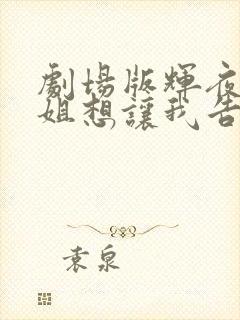 劇場版輝夜
姐想讓我告
袁泉